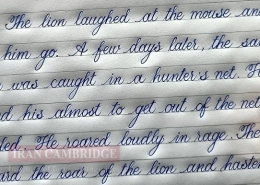 The lion laughed at the mouse an
him go. A few days later, the sa
was caught in a hunter's net. H
d his almost to get out of the net
led. He roared loudly in rage. The
IRAN CAMBRIDGE
ard the roar of the lion and hasten